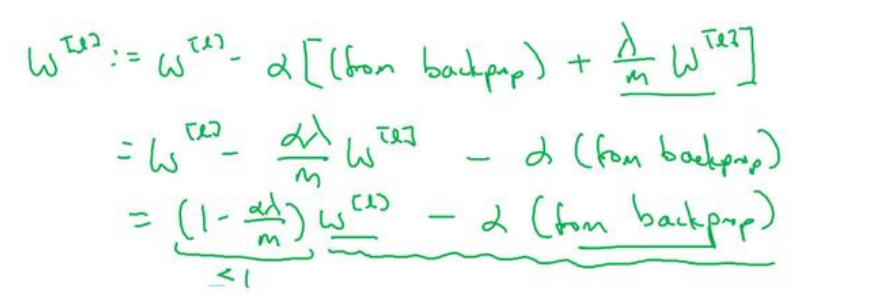 W^[l] := W^[l] - α[(from backprop) + λ/m W^[l]]
= W^[l] - αλ/m W^[l] - α (from backprop)
= (1 - αλ/m) W^[l] - α (from backprop)
<1